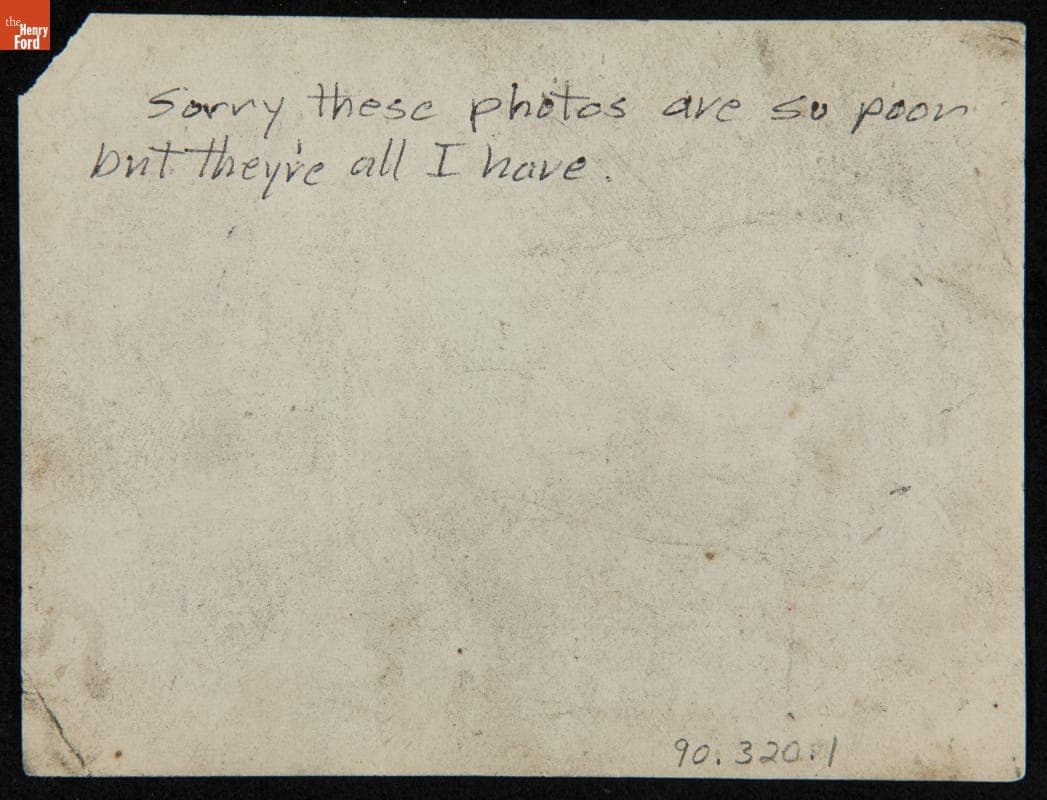 the
Henry
Ford
Sorry these photos are so poor
but they're all I have.
90.320.1